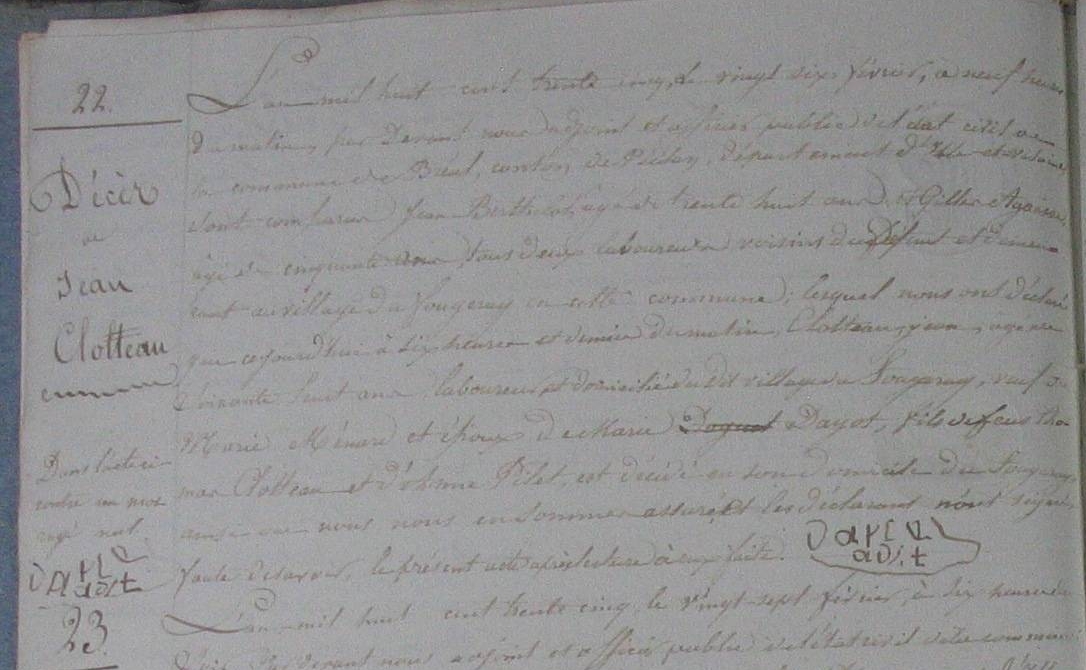 22.
Décès
de
Jean
Clotteau
Dans l'acte ci
contre un mot
rayé nul.
Dartel
adjt
L'an mil huit cent trente cinq, le vingt six février, à neuf heures
du matin, par devant nous adjoint et officier public de l'état civil de
la commune de Bréal, canton de Plélan, département d'Ille et vilaine
sont comparus Jean Berthelot, âgé de trente huit ans et Gilles Agaisse
âgé de cinquante ans, tous deux laboureurs voisins du défunt et demeu-
rant au village du fougeray en cette commune; lesquel nous ont déclaré
que cejourd'hui à six heures et demie du matin, Clotteau, jean, âgé de
soixante huit ans, laboureur et domicilié du dit village du Fougeray, veuf de
Marie Ménard et époux de Marie Doguet Dayot, fils de feus Tho-
mas Clotteau et d'Anne Pilet, est décédé en son domicile du Fougeray
ainsi que nous nous en sommes assuré. Et les déclarans n'ont signé,
faute de savoir, le présent acte après lecture à eux faite. Dartel
adjt
23.
L'an mil huit cent trente cinq, le vingt sept février, à dix heures du
devant nous adjoint et officier public de l'état civil de la commune